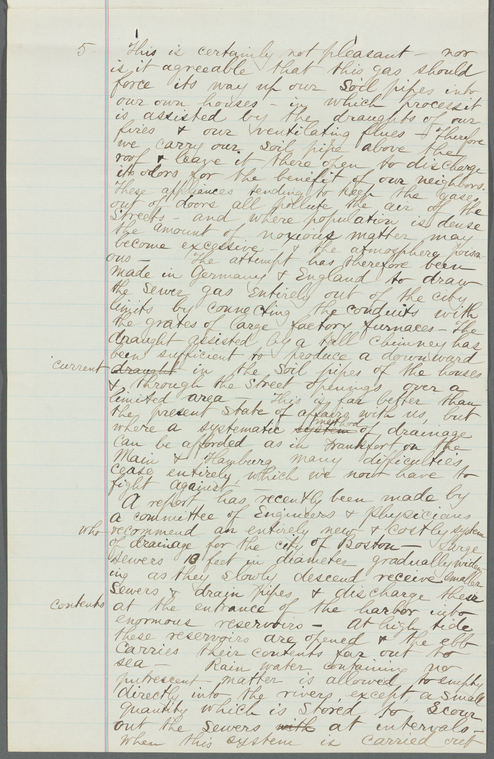 5- This is certainly not pleasant - nor
is it agreeable that this gas should
force its way up our Soil pipes into
our own houses - in which process it
is assisted by the draughts of our
fires & our ventilating flues - Therefore
we carry our soil pipe above the
roof & leave it there open to discharge
its odors for the benefit of our neighbors.
These appliances tending to keep the gases
out of doors all pollute the air of the
Streets - and where population is dense
the amount of noxious matter may
become excessive - & the atmosphere poison-
ous - The attempt has therefore been
made in Germany & England to draw
the Sewer gas Entirely out of the City
limits by connecting the conduits with
the grates of large factory furnaces - The
draught assisted by a tall chimney has
been sufficient to produce a downward
current draught in the Soil pipes of the houses
& through the Street openings, over a
limited area - This is far better than
the present state of affairs with us, but
where a systematic system method of drainage
can be afforded as in Frankfort on the
Main & Hamburg many difficulties
cease entirely which we now have to
fight against
A report has recently been made by
a committee of Engineers & Physicians
who recommend an entirely new & costly system
of drainage for the city of Boston - Large
sewers 10 feet in diameter gradually widen
ing as they slowly descend receive smaller
Sewers & drain pipes & discharge their
contents at the entrance of the harbor into
enormous reservoirs - At high tide
these reservoirs are opened & the ebb
carries their contents far out to
sea - Rain water containing no
putrescent matter is allowed to empty
directly into the rivers, except a small
quantity which is stored to Scour
out the Sewers with at intervals -
When this system is carried out